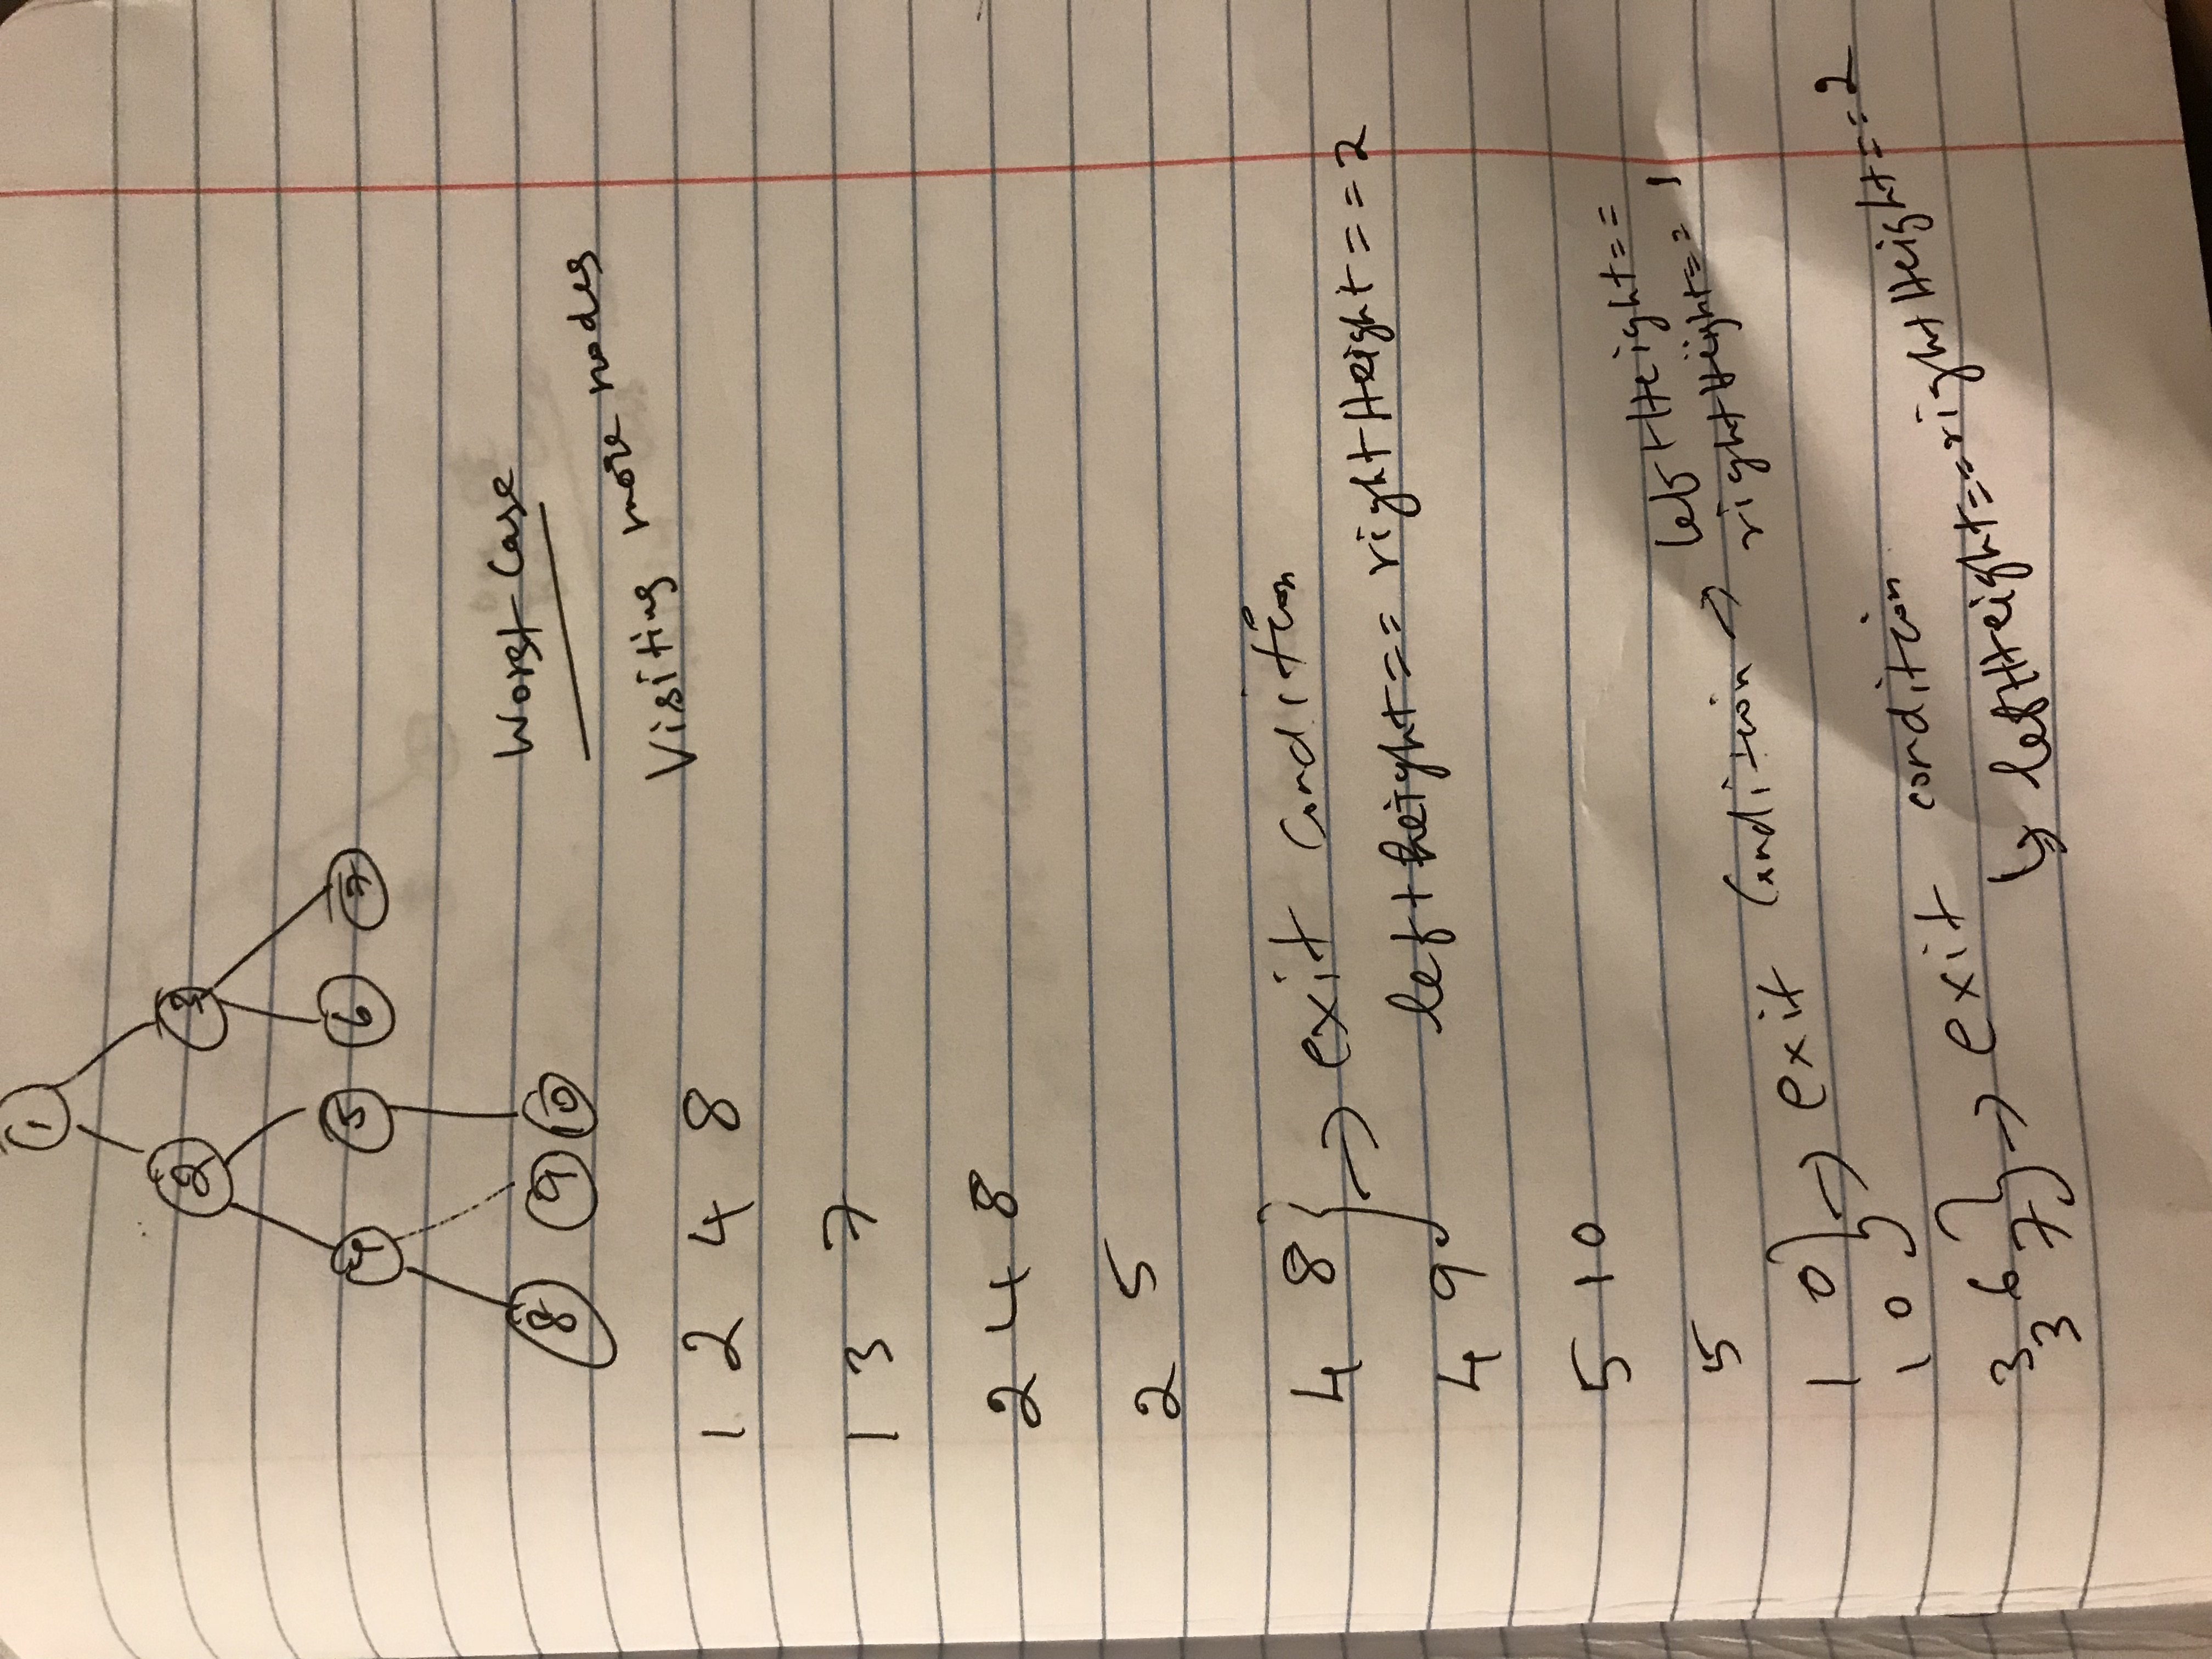 1
2 3
4 5 6 7
8 9 10
Worst Case
Visiting more nodes
1 2 4 8
1 3 7
2 4 8
2 5
4 8 } → exit condition
4 9 leftheight == rightHeight == 2
5 10
5
1 0 } → exit condition → leftHeight ==
1 0 rightHeight == 1
3 6 } → exit condition
3 7 ↳ leftHeight == rightHeight == 2